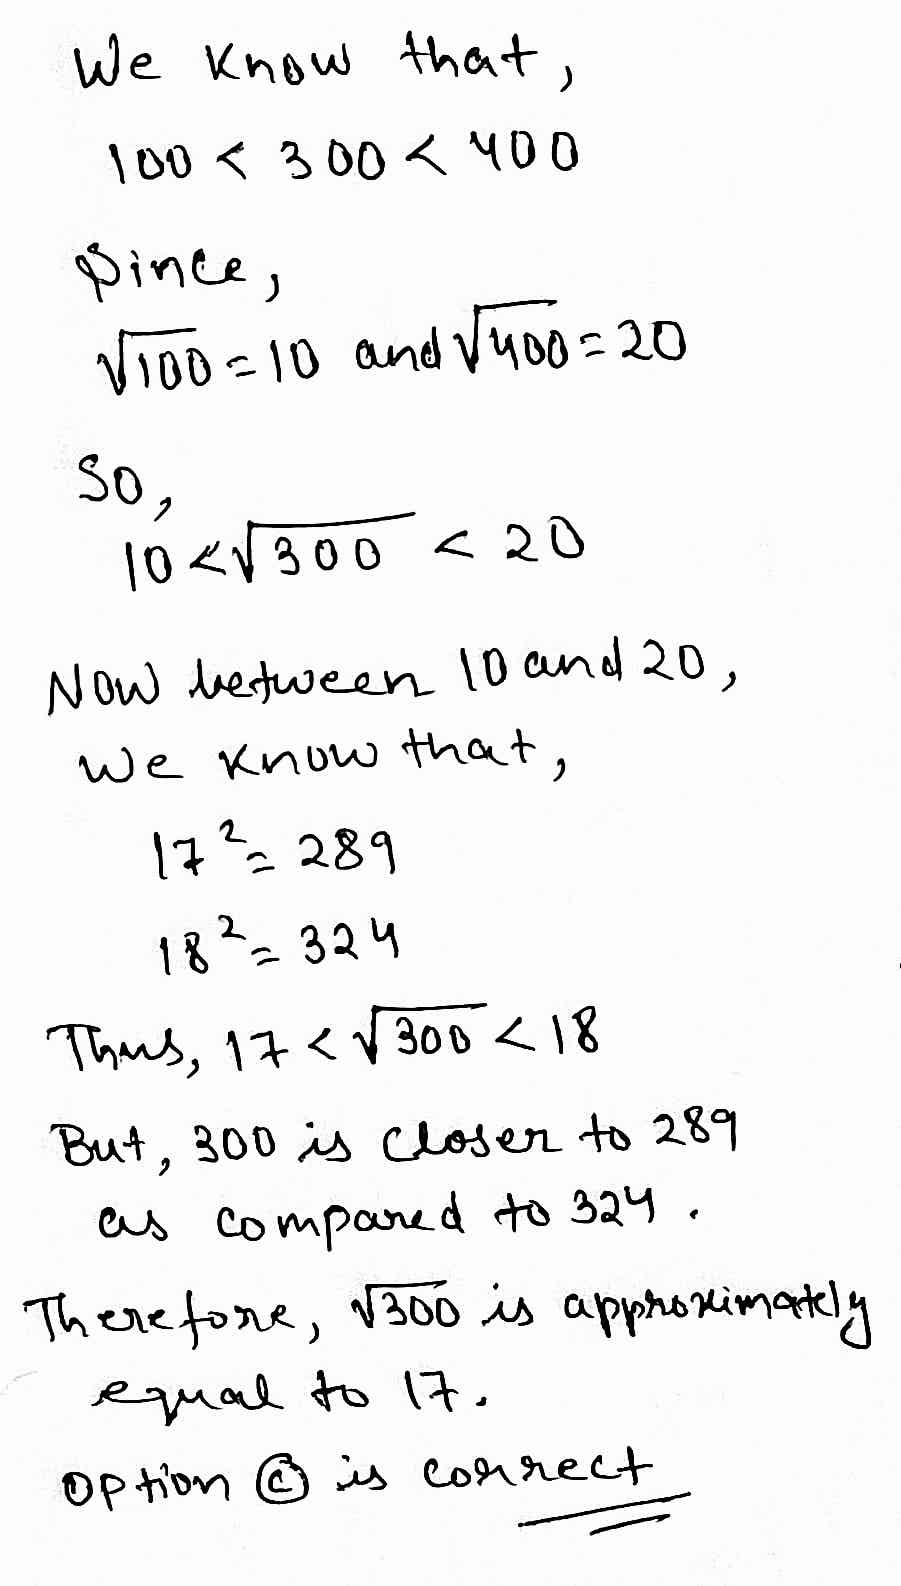 We know that,
100 < 300 < 400
Since,
√100 = 10 and √400 = 20
So,
10 < √300 < 20
Now between 10 and 20,
we know that,
17² = 289
18² = 324
Thus, 17 < √300 < 18
But, 300 is closer to 289
as compared to 324.
Therefore, √300 is approximately
equal to 17.
option Ⓒ is correct